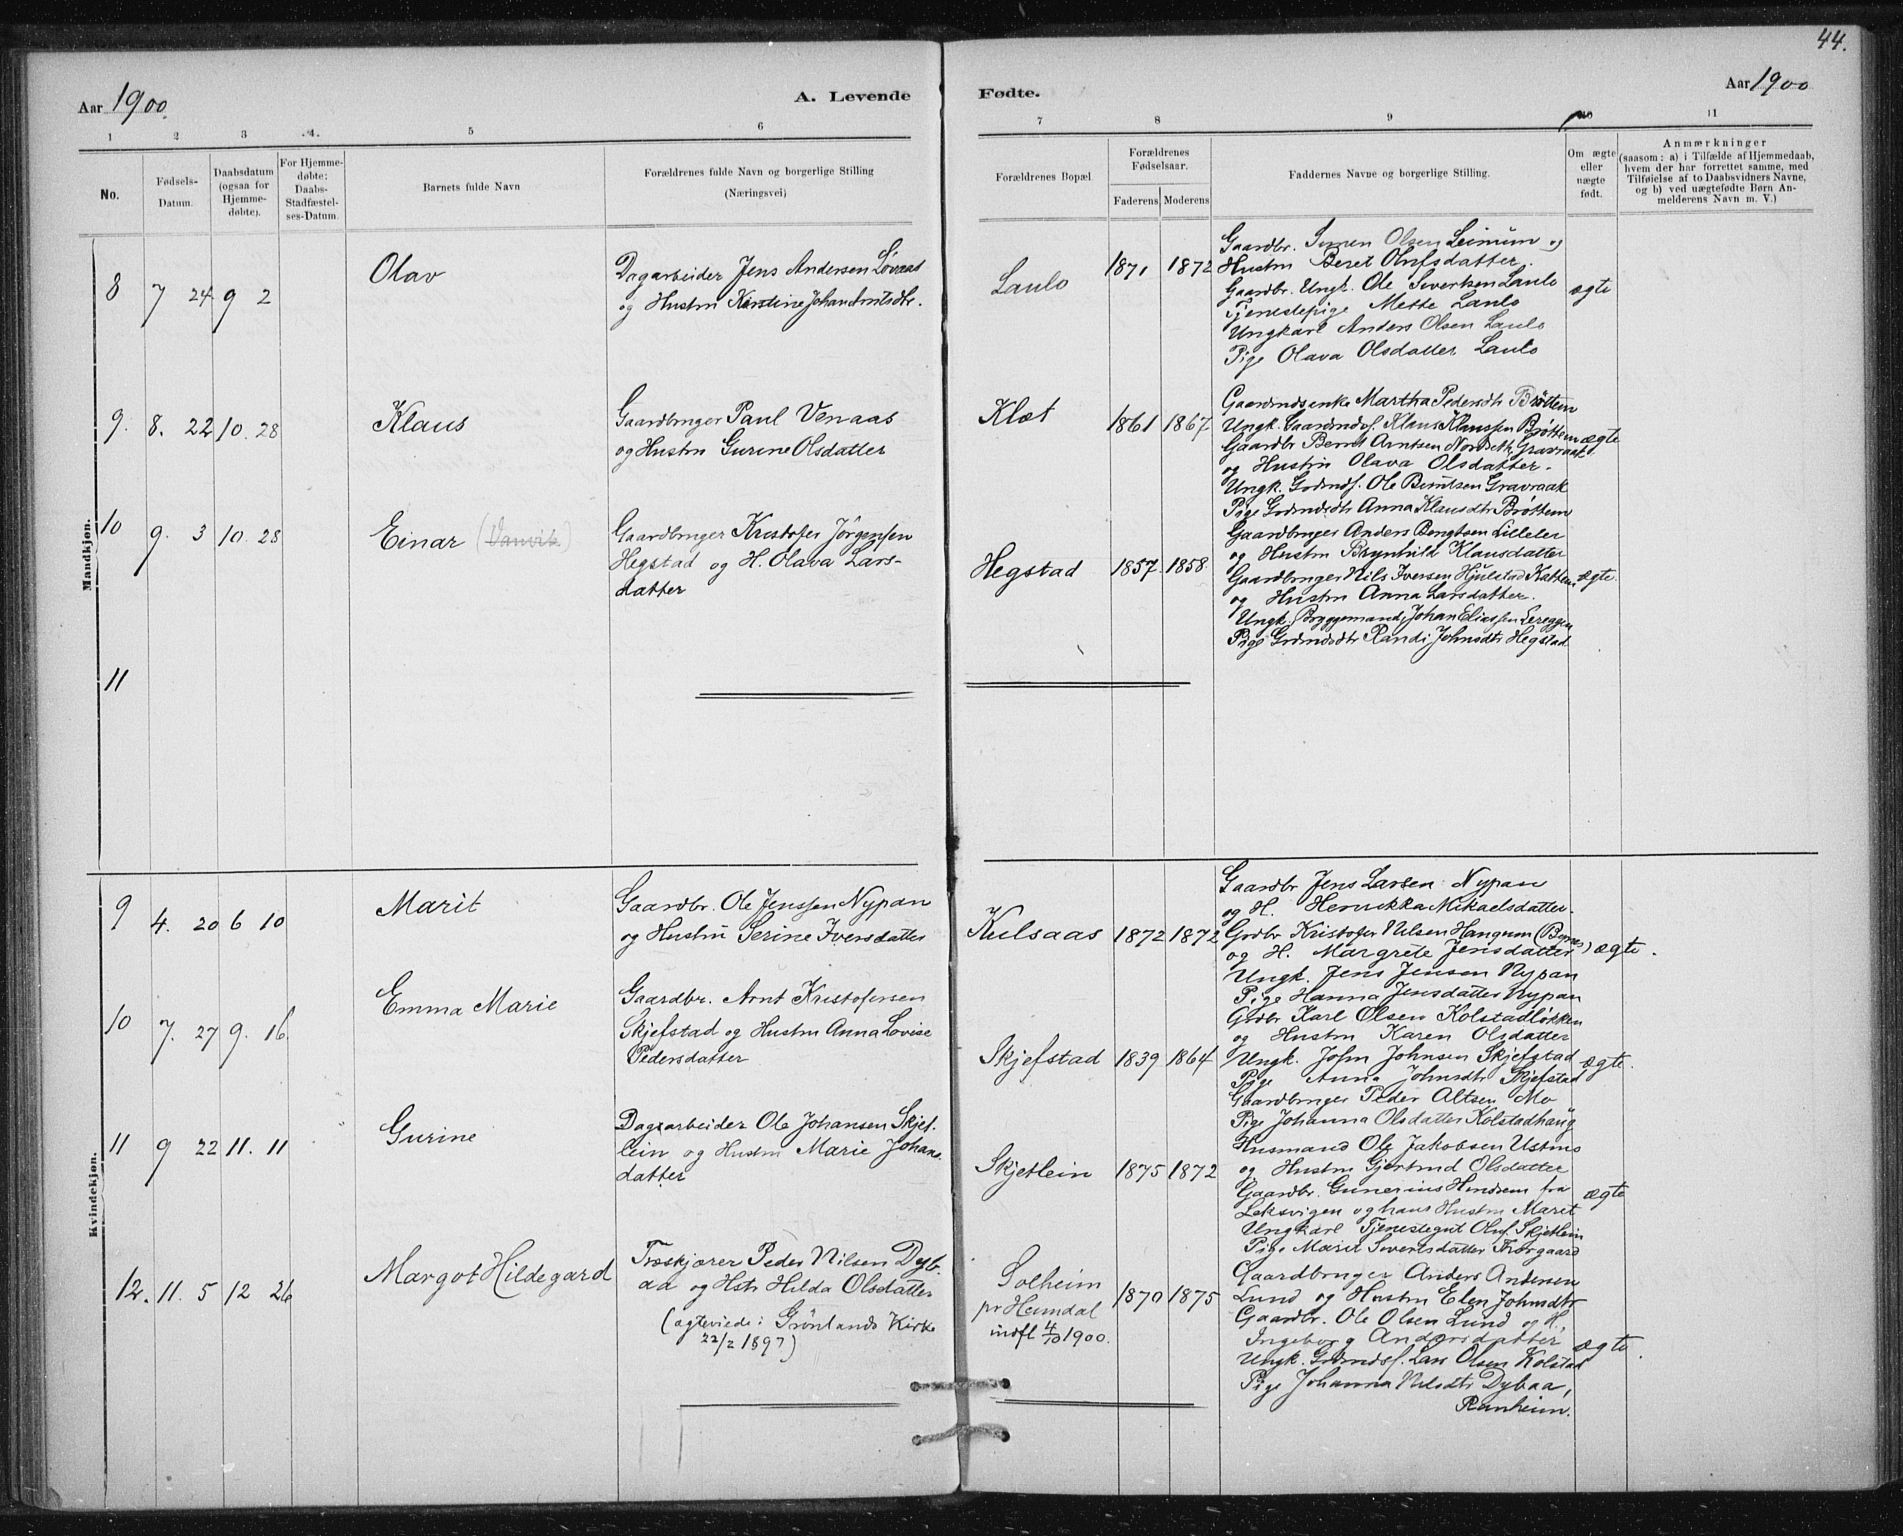 44.
Aar 1900.
A. Levende
Fødte.
Aar 1900
1 2 3 4. 5 6
7 8 9 10 11
No.
Fødsels-
Datum.
Daabsdatum
(ogsaa for
Hjemme-
døbte).
For Hjemme-
døbte:
Daabs-
Stadfæstel-
ses-Datum.
Barnets fulde Navn
Forældrenes fulde Navn og borgerlige Stilling
(Næringsvei)
Forældrenes Bopæl
Forældrenes
Fødselsaar.
Faderens
Moderens
Faddernes Navne og borgerlige Stilling.
Om ægte
eller
uægte
født.
Anmærkninger
(saasom: a) i Tilfælde af Hjemmedaab,
hvem der har forrettet samme, med
Tilføielse af to Daabsvidners Navne,
og b) ved uægtefødte Børn An-
melderens Navn m. V.)
Mandkjøn.
8
7 24
9 2
Olav
Dagarbeider Jens Andersen Løvaas
og Hustru Kirstine JohanArntsdtr.
Laulo
1871
1872
Gaardbr. Simen Olsen Leinum og
Hustru Beret Olufsdatter.
Gaardbr. Ungk. Ole Sivertsen Laulo
Tjenestepige Mette Laulo
Ungkarl Anders Olsen Laulo
Pige Olava Olsdatter Laulo
ægte
9.
8. 22
10. 28
Klaus
Gaardbruger Paul Venaas
og Hustru Gurine Olsdatter
Klæt
1861
1867
Gaardmdsenke Martha Pedersdtr Brøttem
Ungk. Gaardmdsf. Klaus Klaussen Brøttem
Gaardbr Bernt Arntsen Nordseth, Gravraak
og Hustru Olava Olsdatter.
Ungk. Grdmdsf. Ole Berntsen Gravraak
Pige Grdmdsdtr Anna Klausdtr Brøttem
ægte
10
9. 3
10. 28
Einar (Vanvik)
Gaardbruger Kristofer Jørgenssen
Hegstad og H. Olava Lars-
datter
Hegstad
1857.
1858.
Gaardbruger Anders Bengtsen Lilleler
og Hustru Brynhild Klausdatter
Gaardbruger Nils Iversen Hjulstad Kattem
og Hustru Anna Larsdatter.
Ungk. Bryggemand Johan Eliassen Lereggen
Pige Grdmdsdtr Randi Johnsdtr Hegstad
ægte.
11
Kvindekjøn.
9
4. 20
6 10
Marit
Gaardbr. Ole Jenssen Nypan
og Hustru Serine Iversdatter
Kulsaas
1872
1872
Gaardbr Jens Larsen Nypan
og H. Henrikka Mikaelsdatter.
Grdbr Kristofer Nilsen Hangum
og H. Margrete Jensdatter
Ungk. Jens Jensen Nypan
Pige Hanna Jensdatter Nypan
ægte.
10
7. 27
9. 16.
Emma Marie
Gaardbr. Arnt Kristofersen
Skjefstad og Hustru Anna Lovise
Pedersdatter
Skjefstad
1839
1864
Grdbr Karl Olsen Kolstadløkken
og Hustru Karen Olsdatter
Ungk. John Johnsen Skjefstad
Pige Anna Johnsdtr Skjefstad
Gaardbruger Peder Altsen Mo
Pige Johanna Olsdatter Kolstadhaug
ægte.
11
9 22
11. 11
Gurine
Dagsarbeider Ole Johansen Skjet-
lein og Hustru Marie Johans-
datter
Skjetlein
1875
1872
Husmand Ole Jakobsen Ustmo
og Hustru Gjertrud Olsdatter
Gaardbr. Gunerius Hindrem fra
Leksvigen og hans Hustru Marit
Ungkarl Tjenestegut Oluf Skjetlein
Pige Marit Sivertsdatter Thorgaard
ægte
12.
11. 5
12 26
Margot Hildegard
Træskjærer Peder Nilsen Dyb-
aa og Hstr Hilda Olsdatter
(ægteviede i Grønlands Kirke
22/2 1897)
Solheim
pr Heimdal
indfl 4/10 1900.
1870
1875
Gaardbruger Anders Andersen
Lund og Hustru Elen Johnsdtr
Gaardbr. Ole Olsen Lund og H.
Ingeborg Andersdatter
Ungk. Grdmdsf. Lars Olsen Kolstad
Pige Johanna Nilsdtr Dybaa,
Ranheim.
ægte.